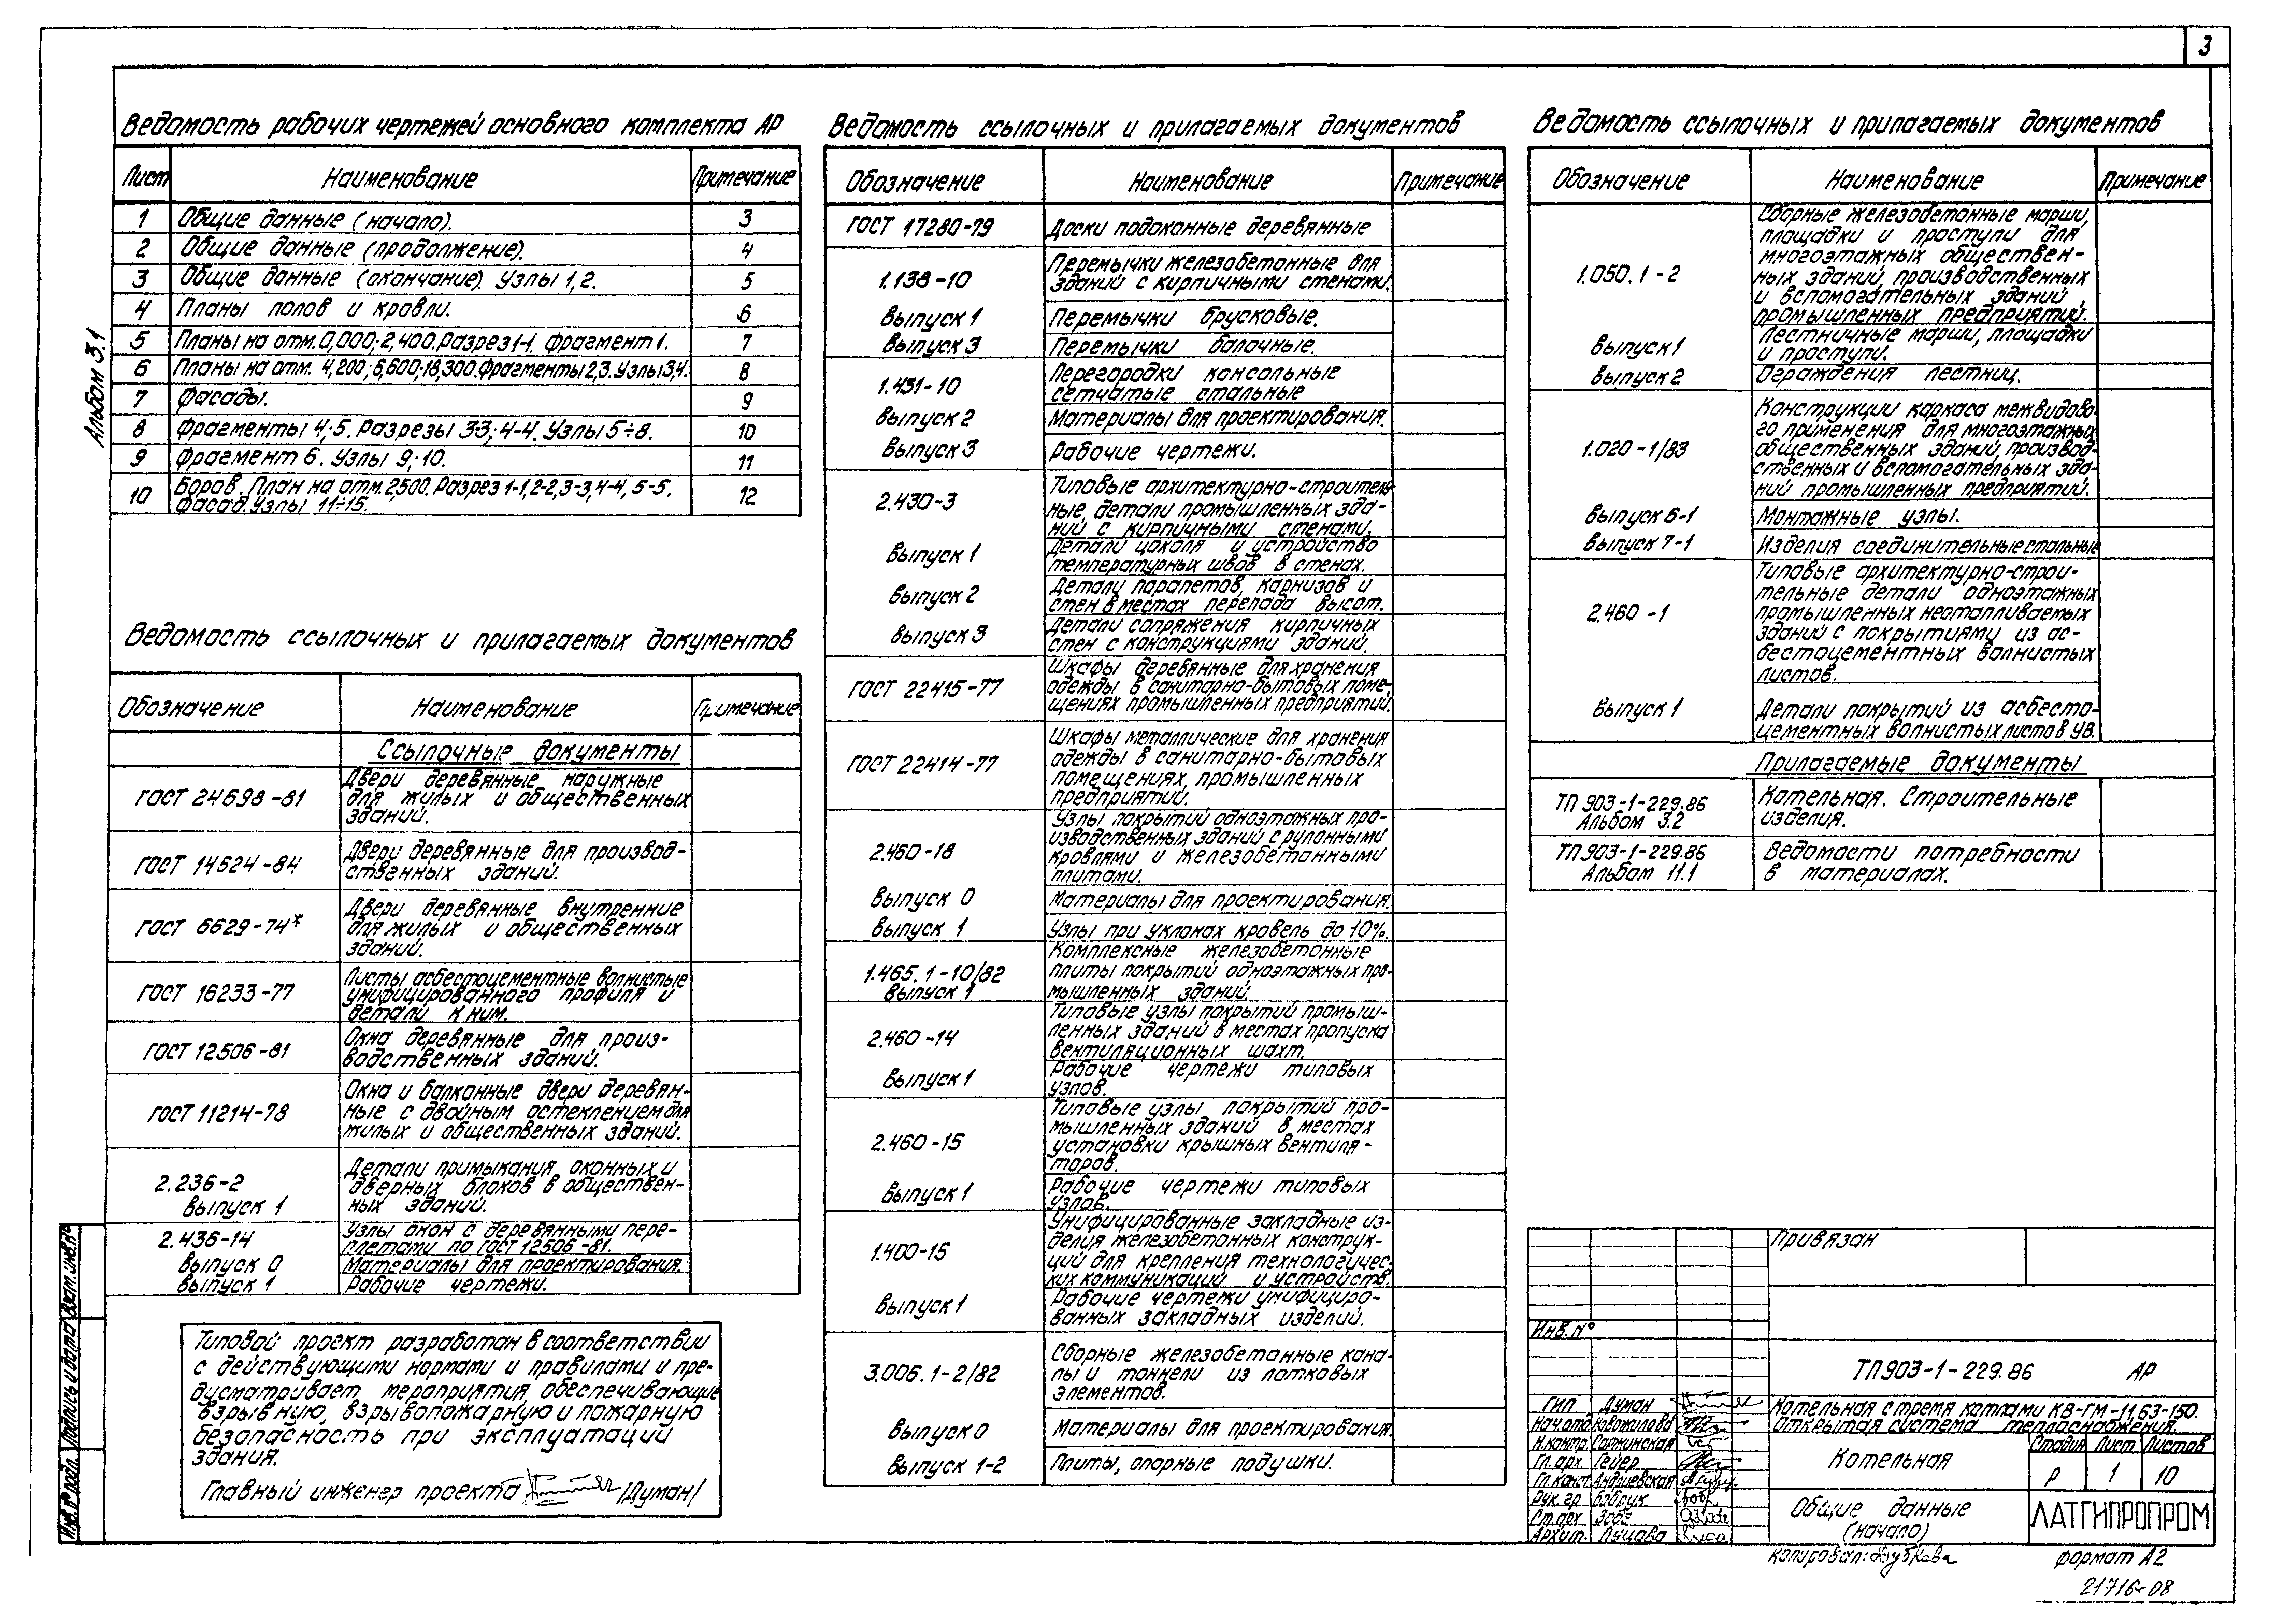 3
Альбом 3.1
Ведомость рабочих чертежей основного комплекта АР
Лист Наименование Примечание
1 Общие данные (начало). 3
2 Общие данные (продолжение). 4
3 Общие данные (окончание). Узлы 1,2. 5
4 Планы полов и кровли. 6
5 Планы на отм. 0,000; 2,400. Разрез 1-1. Фрагмент 1. 7
6 Планы на отм. 4,200; 6,600; 18,300. Фрагменты 2,3. Узлы 3,4. 8
7 Фасады. 9
8 Фрагменты 4; 5. Разрезы 3-3; 4-4. Узлы 5÷8. 10
9 Фрагмент 6. Узлы 9; 10. 11
10 Боров. План на отм. 2,500. Разрез 1-1, 2-2, 3-3, 4-4, 5-5. 12
Фасад. Узлы 11÷15.
Ведомость ссылочных и прилагаемых документов
Обозначение Наименование Примечание
Ссылочные документы
ГОСТ 24698-81 Двери деревянные наружные
для жилых и общественных
зданий.
ГОСТ 14624-84 Двери деревянные для производ-
ственных зданий.
ГОСТ 6629-74* Двери деревянные внутренние
для жилых и общественных
зданий.
ГОСТ 16233-77 Листы асбестоцементные волнистые
унифицированного профиля и
детали к ним.
ГОСТ 12506-81 Окна деревянные для произ-
водственных зданий.
ГОСТ 11214-78 Окна и балконные двери деревян-
ные с двойным остеклением для
жилых и общественных зданий.
2.236-2 Детали примыкания оконных и
дверных блоков в обществен-
выпуск 1 ных зданий.
2.436-14 Узлы окон с деревянными пере-
плетами по ГОСТ 12506-81.
выпуск 0 Материалы для проектирования.
выпуск 1 Рабочие чертежи.
Типовой проект разработан в соответствии
с действующими нормами и правилами и пре-
дусматривает мероприятия, обеспечивающие
взрывную, взрывопожарную и пожарную
безопасность при эксплуатации
здания.
Главный инженер проекта /Думан/
Ведомость ссылочных и прилагаемых документов
Обозначение Наименование Примечание
ГОСТ 17280-79 Доски подоконные деревянные
1.138-10 Перемычки железобетонные для
зданий с кирпичными стенами.
выпуск 1 Перемычки брусковые.
выпуск 3 Перемычки балочные.
1.431-10 Перегородки консольные
сетчатые стальные
выпуск 2 Материалы для проектирования.
выпуск 3 Рабочие чертежи.
2.430-3 Типовые архитектурно-строитель-
ные детали промышленных зда-
ний с кирпичными стенами.
выпуск 1 Детали цоколя и устройство
температурных швов в стенах.
выпуск 2 Детали парапетов, карнизов и
стен в местах перепада высот.
выпуск 3 Детали сопряжения кирпичных
стен с конструкциями зданий.
ГОСТ 22415-77 Шкафы деревянные для хранения
одежды в санитарно-бытовых поме-
щениях промышленных предприятий.
ГОСТ 22414-77 Шкафы металлические для хранения
одежды в санитарно-бытовых
помещениях, промышленных
предприятий.
2.460-18 Узлы покрытий одноэтажных про-
изводственных зданий с рулонными
кровлями и железобетонными
плитами.
выпуск 0 Материалы для проектирования.
выпуск 1 Узлы при уклонах кровель до 10%.
1.465.1-10/82 Комплексные железобетонные
плиты покрытий одноэтажных про-
выпуск 1 мышленных зданий.
2.460-14 Типовые узлы покрытий промыш-
ленных зданий в местах пропуска
вентиляционных шахт.
выпуск 1 Рабочие чертежи типовых
узлов.
2.460-15 Типовые узлы покрытий про-
мышленных зданий в местах
установки крышных вентиля-
торов.
выпуск 1 Рабочие чертежи типовых
узлов.
1.400-15 Унифицированные закладные из-
делия железобетонных конструк-
ций для крепления технологичес-
ких коммуникаций и устройств.
выпуск 1 Рабочие чертежи унифициро-
ванных закладных изделий.
3.006.1-2/82 Сборные железобетонные кана-
лы и тоннели из лотковых
элементов.
выпуск 0 Материалы для проектирования.
выпуск 1-2 Плиты, опорные подушки.
Ведомость ссылочных и прилагаемых документов
Обозначение Наименование Примечание
1.050.1-2 Сборные железобетонные марши,
площадки и проступи для
многоэтажных обществен-
ных зданий, производственных
и вспомогательных зданий,
промышленных предприятий.
выпуск 1 Лестничные марши, площадки
и проступи.
выпуск 2 Ограждения лестниц.
1.020-1/83 Конструкции каркаса межвидово-
го применения для многоэтажных
общественных зданий, производ-
ственных и вспомогательных зда-
ний промышленных предприятий.
выпуск 6-1 Монтажные узлы.
выпуск 7-1 Изделия соединительные стальные
2.460-1 Типовые архитектурно-строи-
тельные детали одноэтажных
промышленных неотапливаемых
зданий с покрытиями из ас-
бестоцементных волнистых
листов.
выпуск 1 Детали покрытий из асбесто-
цементных волнистых листов УВ.
Прилагаемые документы
ТП 903-1-229.86 Котельная. Строительные
Альбом 3.2 изделия.
ТП 903-1-229.86 Ведомости потребности
Альбом 11.1 в материалах.
Привязан
Инв. №
ТП 903-1-229.86 АР
ГИП Думан
Нач.отд. Новожилова
Н.контр. Сортинская
Гл.арх. Гейер
Гл.конст. Андриевская
Рук.гр. Бобрук
Ст.арх. Зоде
Архит. Луцава
Котельная с тремя котлами КВ-ГМ-11,63-150.
Открытая система теплоснабжения.
Котельная
Стадия Лист Листов
Р 1 10
Общие данные
(начало)
ЛАТГИПРОПРОМ
Копировал: Дубкова
формат А2
21716-08
Инв. № подл. Подпись и дата Взам. инв. №